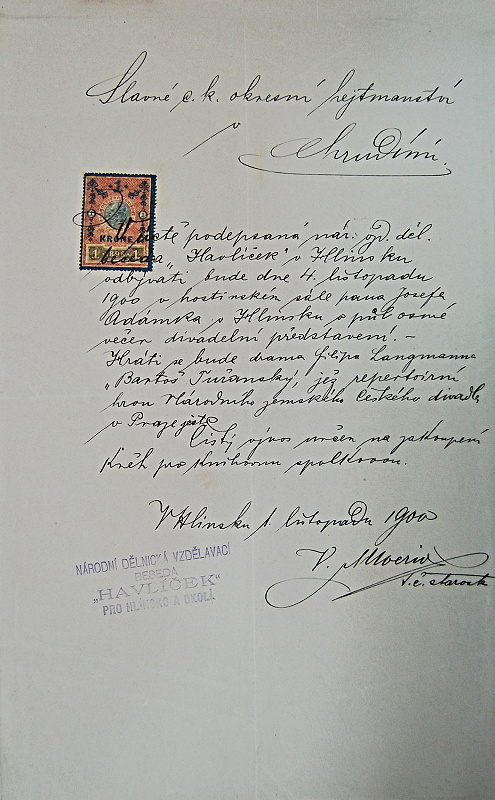 Slavné c. k. okresní hejtmanství
v
Chrudimi.
1
KRONE
1 1
V úctě podepsaná nár. vzd. děl.
beseda "Havlíček" v Hlinsku
odbývati bude dne 4. listopadu
1900 v hostinském sále pana Josefa
Adámka v Hlinsku o půl osmé
večer divadelní představení. –
Hráti se bude drama Filipa Langmanna
"Bartoš Turžanský, jež repertoirní
hrou Národního zemského českého divadla
v Praze jest.
Čistý výnos určen na zakoupení
kněh pro knihovnu spolkovou.
V Hlinsku 1. listopadu 1900
V.
t. č. starosta
NÁRODNÍ DĚLNICKÁ VZDĚLAVACÍ
BESEDA
„HAVLÍČEK"
PRO HLINSKO A OKOLÍ.